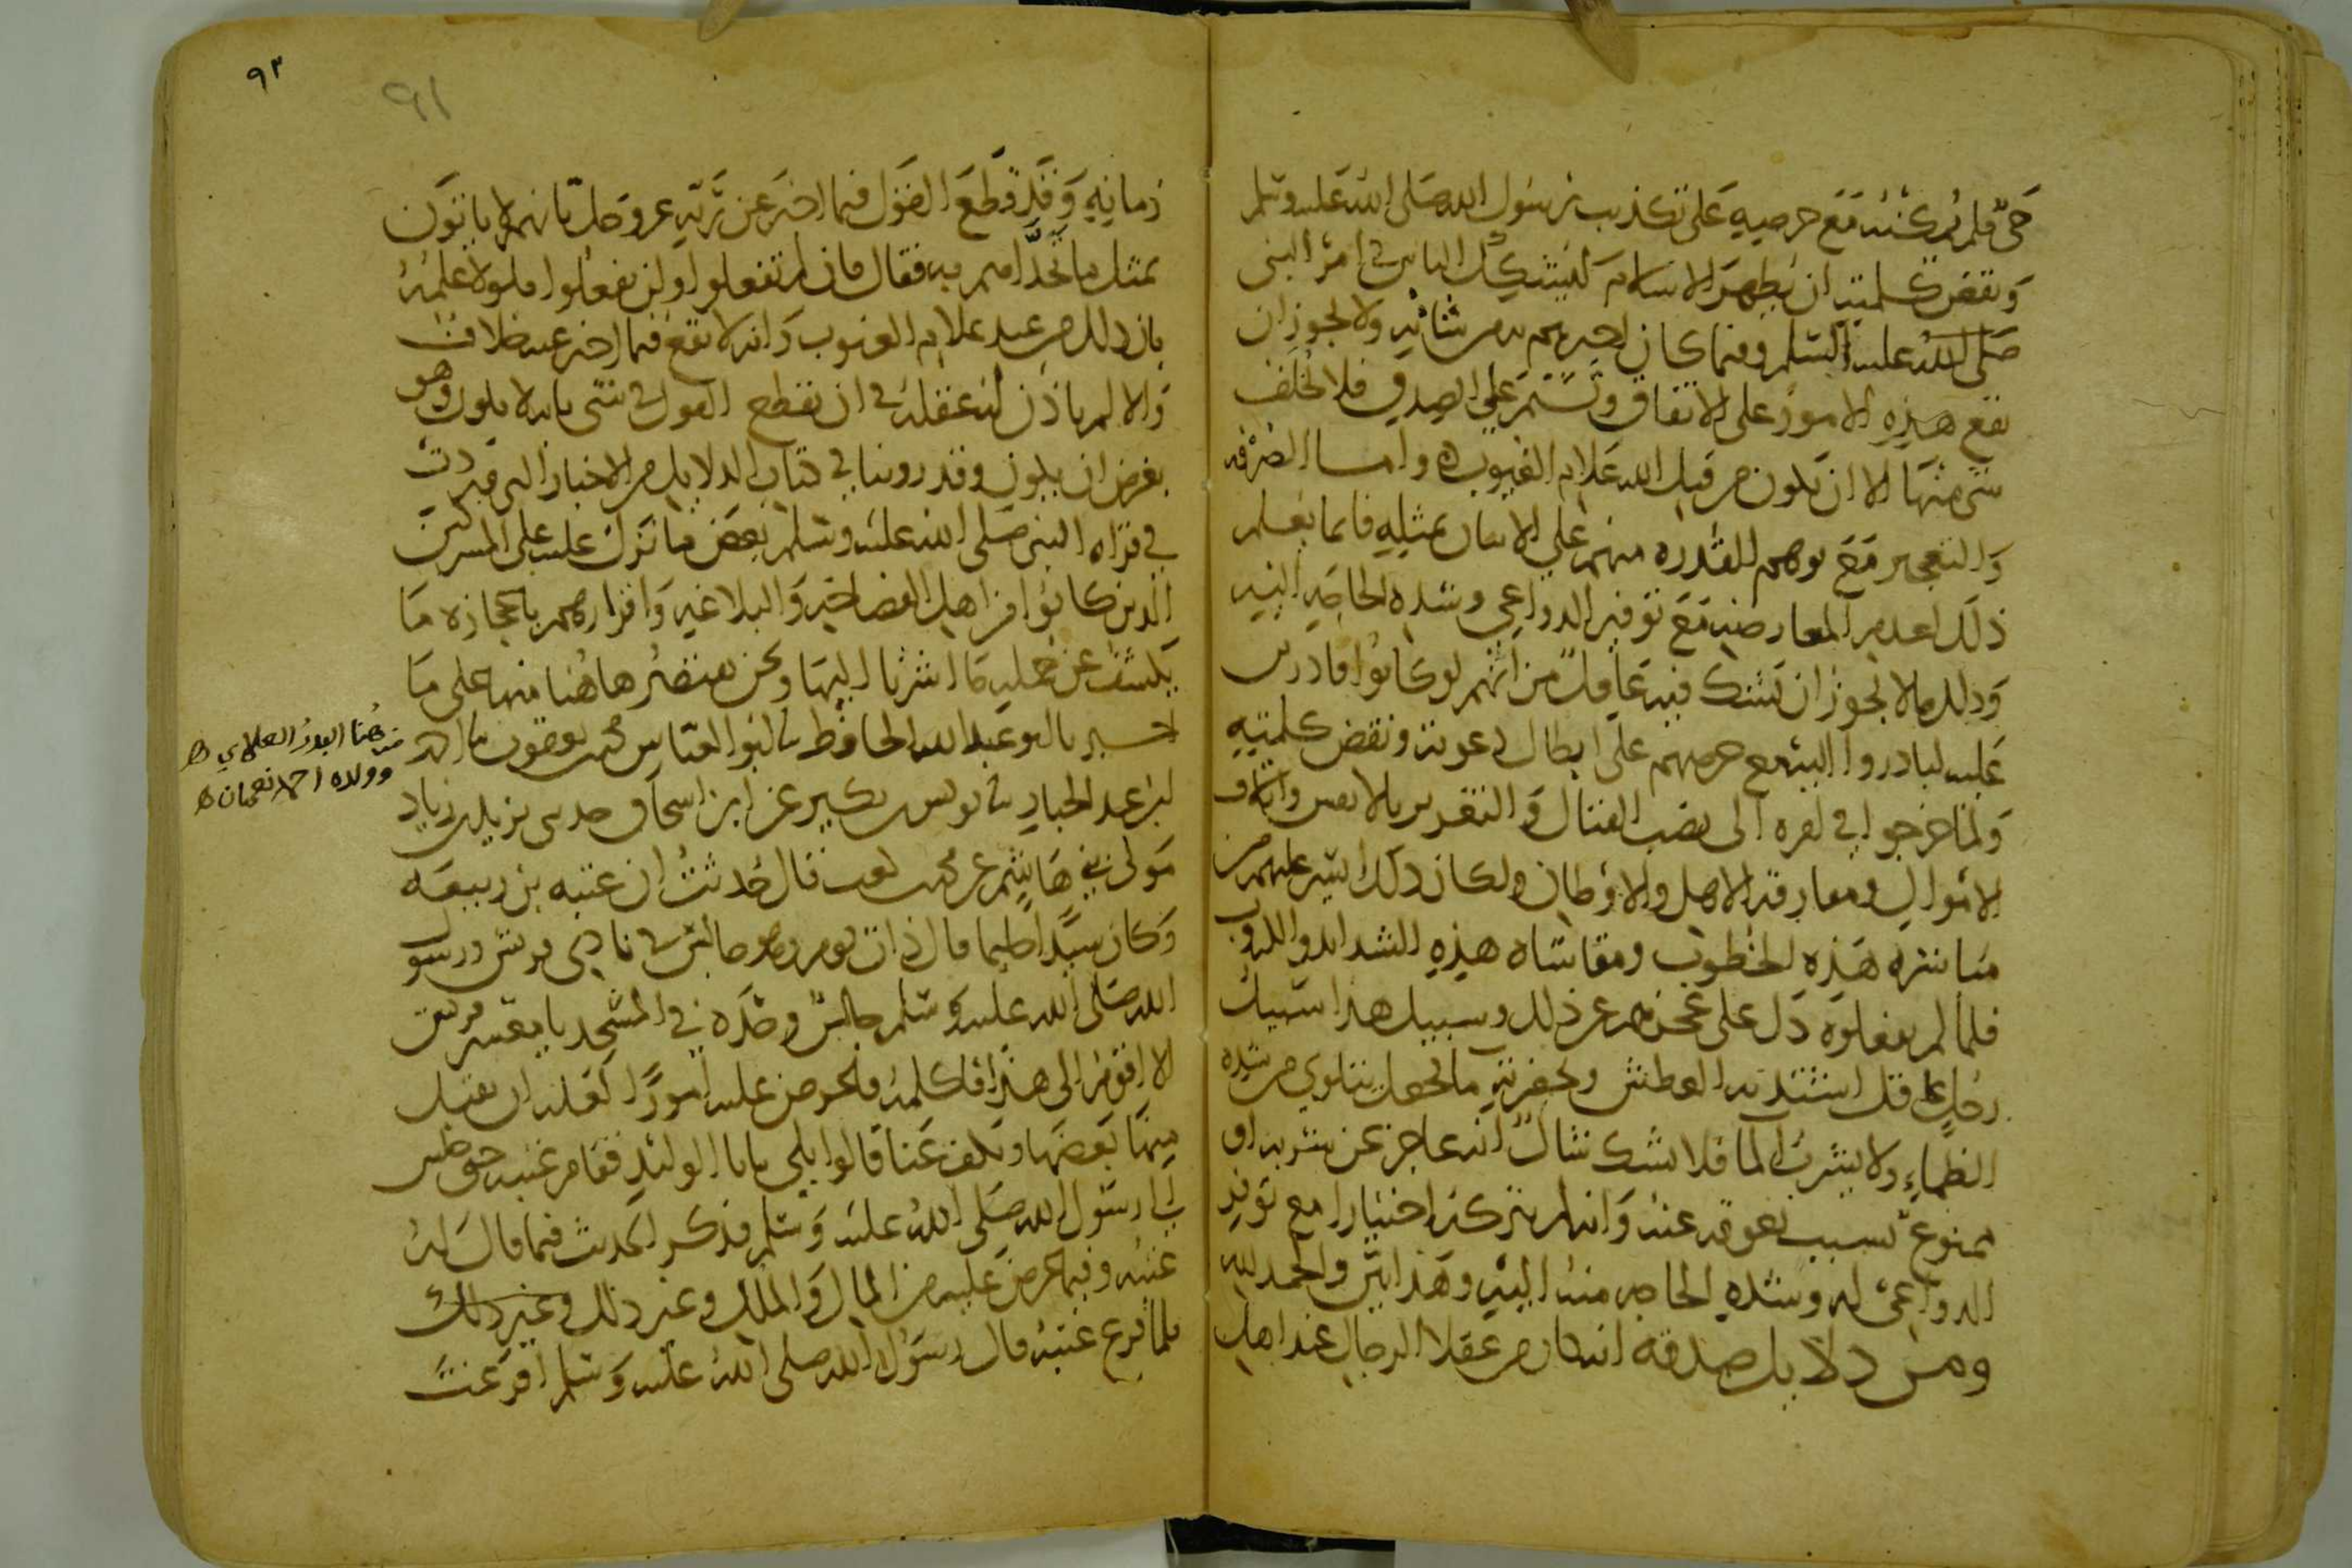 حي فلم يمكنه مع حرصه على تكذيب رسول الله صلى الله عليه وسلم
ونقض كلمته ان يظهر الاسلام ليشكك الناس في امر النبي
صلى الله عليه وسلم وفيما كان يخبرهم به من شانه ولا يجوز ان
تقع هذه الامور على الاتفاق وتستمر على الصدق فلا تخلف
شي منها الا ان تكون من قبل الله علام الغيوب واما الصرفه
والتعجيز مع توهم القدره منهم على الاتيان بمثله فانما يعلم
ذلك بعدم المعارضه مع توفر الدواعي وشده الحاجه اليه
وذلك مالا يجوز ان يشك فيه عاقل من انهم لو كانوا قادرين
عليه لبادروا اليه مع حرصهم على ابطال دعوته ونقض كلمته
ولما خرجوا في امره الى نصب القتال والتغرير بالانفس واتلاف
الاموال ومفارقه الاهل والاوطان ولكان ذلك ايسر عليهم من
مباشره هذه الخطوب ومقاساه هذه الشدايد والكروب
فلما لم يفعلوه دل على عجزهم عن ذلك وسبيل هذا سبيل
رجل عاقل اشتد به العطش وبحضرته ما فجعل يتلوي من شده
الظماء ولا يشرب الما فلا يشك شاك انه عاجز عن شربه او
ممنوع بسبب يعوقه عنه وانه لم يتركه اختيارا مع توفر
الدواعي له وشده الحاجه منه اليه وهذا بين والحمد لله
ومن دلايل صدقه انه كان من عقلا الرجال عند اهل
٩٢
٩١
زمانه وقد قطع القول فيما اخبر عن ربه عز وجل بانهم لا ياتون
بمثل ما تحداهم به فقال فان لم تفعلوا ولن تفعلوا فلولا علمه
بان ذلك من عند علام الغيوب وانه لا يقع فيما اخبر عنه خلاف
والا لم ياذن له عقله في ان يقطع القول في شي بانه لا يكون وهو
بعرض ان يكون وقد روينا في كتاب الدلايل من الاخبار التي وردت
في قراه النبي صلى الله عليه وسلم بعض ما نزل عليه على المشركين
الذين كانوا من اهل الفصاحه والبلاغه واقرارهم باعجازه ما
يكشف عن جمله ما اشرنا اليها ونحن نقتصر هاهنا منها على ما
اخبرنا ابو عبد الله الحافظ نا ابو العباس محمد بن يعقوب نا احمد
ابن عبد الجبار نا يونس بن بكير عن ابن اسحاق حدثني يزيد بن زياد
مولى بني هاشم عن محمد بن كعب قال حدثت ان عتبه بن ربيعه
وكان سيدا حليما قال ذات يوم وهو جالس في نادي قريش ورسول
الله صلى الله عليه وسلم جالس وحده في المسجد يا معشر قريش
الا اقوم الى هذا فاكلمه فاعرض عليه امورا لعله ان يقبل
منها بعضها ويكف عنا قالوا بلى يابا الوليد فقام عتبه حتى جلس
الى رسول الله صلى الله عليه وسلم فذكر الحديث فيما قال له
عتبه وفيما عرض عليه من المال والملك وغير ذلك وغير ذلك
فلما فرغ عتبه قال رسول الله صلى الله عليه وسلم افرغت
من هنا البدر العلاي
وولده احمد نعمان